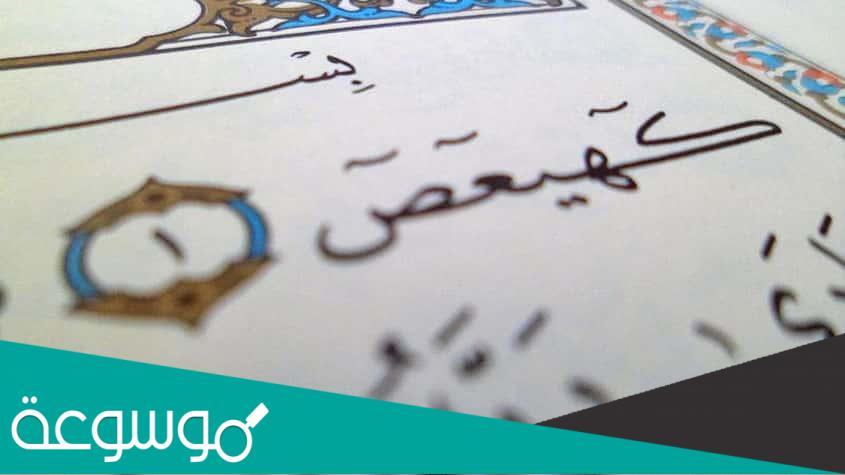 بِسْـ
كٓهيعٓصٓ ١
موسوعة